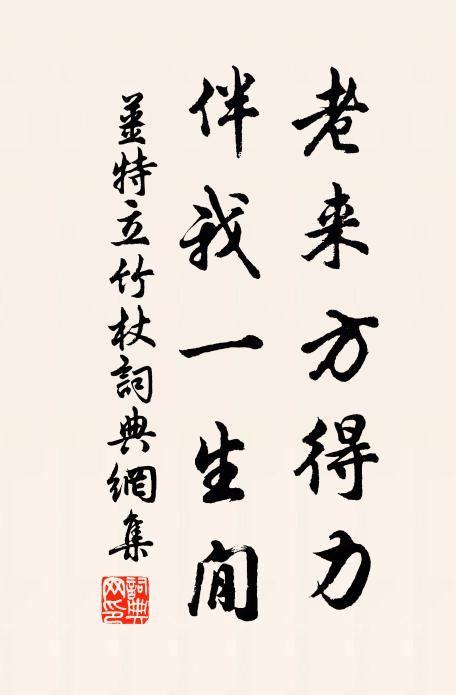 老来方得力
伴我一生閒
薑特立竹杖詞典網集
詞典網印